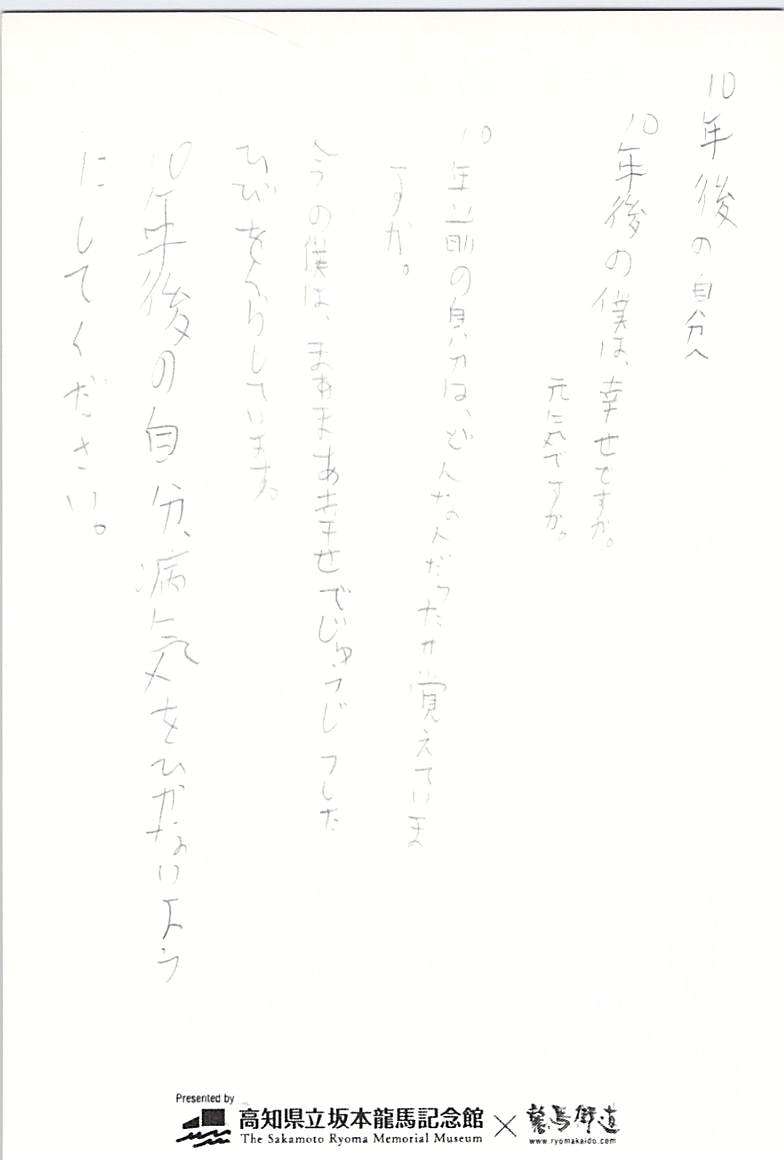 10年後の自分へ
10年後の僕は、幸せですか。
元気ですか。
10年前の自分は、どんなの人だったか覚えていま
すか。
今の僕は、まあまあ幸せでじゅうじつした
ひびをくらしています。
10年後の自分、病気をひかないよう
にしてください。
Presented by
高知県立坂本龍馬記念館
The Sakamoto Ryoma Memorial Museum
×
龍馬街道
www.ryomakaido.com